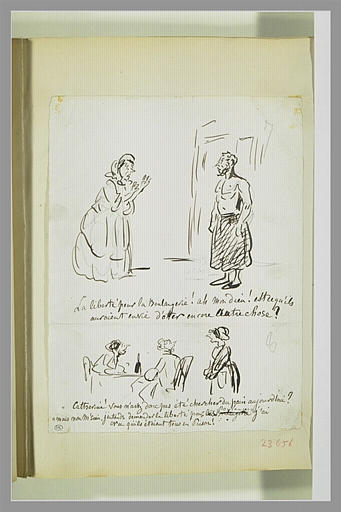 La liberté pour la Boulangerie! ah mon dieu! est ce qu'ils
auraient envie d'oter encore autre chose?
Catherine! vous n'avez donc pas été chercher du pain aujourd'hui?
mais non M'sieu, j'entends demander la liberté pour les j'ai
cru qu'ils étaient tous en prison!
23656